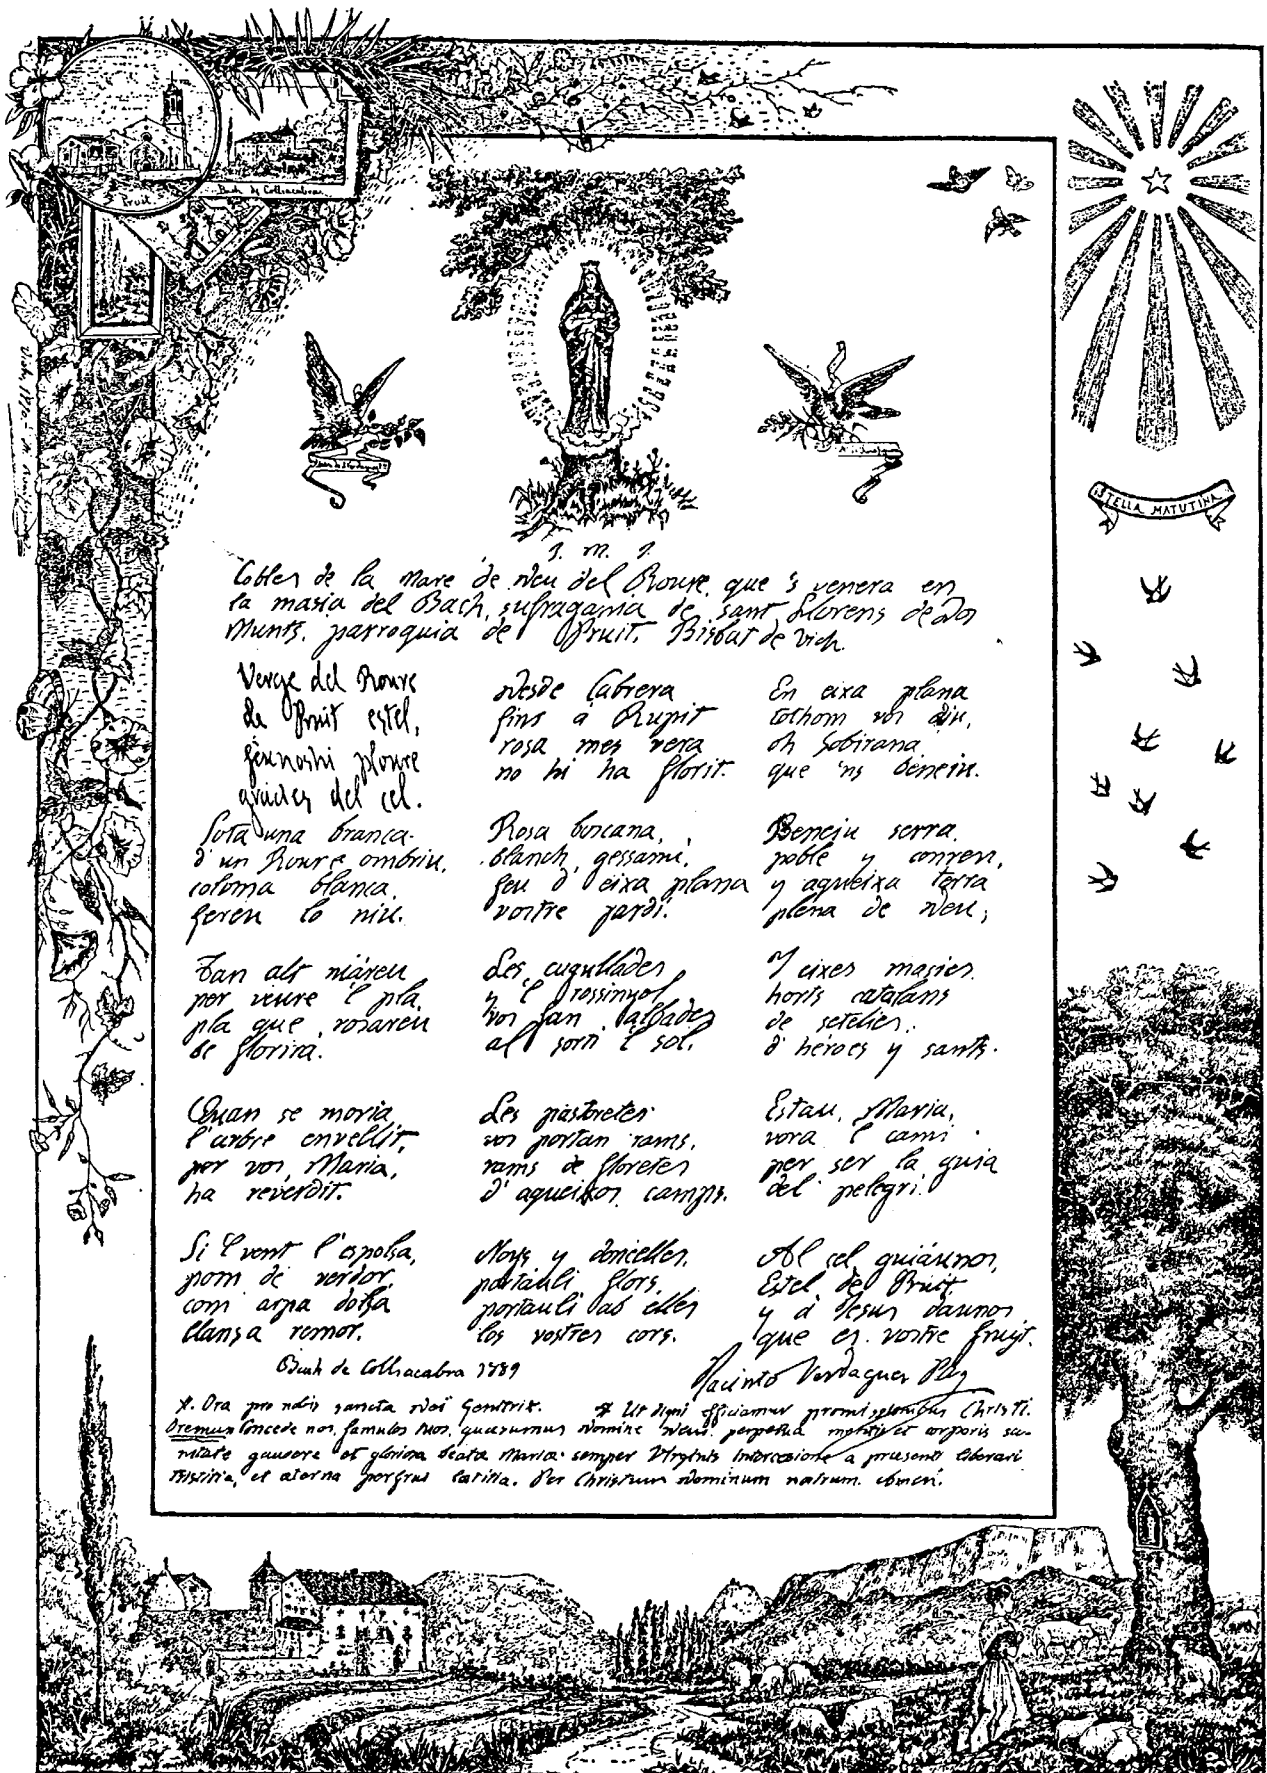 Pruit
Bach de Collsacabra
STELLA MATUTINA
J. M. J.
Cobles de la Mare de Deu del Roure, que 's venera en
la masia del Bach, sufragania de Sant Llorens de Dos
Munts, parroquia de Pruit, Bisbat de Vich.
Verge del Roure
de Pruit estel,
féunoshi ploure
gracies del cel.
Sota una branca
d' un Roure ombriu,
coloma blanca,
fereu lo niu.
Tan alt niáreu
per veure 'l pla,
pla que rosareu
se florirá.
Quan se moria
l' arbre envellit,
per vos, Maria,
ha reverdit.
Si 'l vent l' espolsa,
pom de verdor,
com arpa dolsa
llansa remor.
Desde Cabrera
fins á Rupit
rosa mes vera
no hi ha florit.
Rosa boscana,
blanch gessamí,
feu d' eixa plana
vostre jardí.
Les cugullades
y 'l rossinyol
vos fan albades
al sortí 'l sol.
Les pastoretes
vos portan rams,
rams de floretes
d' aqueixos camps.
Noys y donzelles,
portáuli flors,
portauli ab elles
los vostres cors.
En eixa plana
tothom vos diu,
oh Sobirana
que 'ns beneiu.
Beneiu serra,
poble y conreu,
y aqueixa terra
plena de Deu;
Y eixes masies
horts catalans
de
d' héroes y sants.
Estau, Maria,
vora 'l camí
per ser la guia
del pelegrí.
Al cel guiáunos,
Estel de Pruit
y á Jesus daunos
que es vostre fruyt.
Bach de Collsacabra 1889
Jacinto Verdaguer Pbre
℣. Ora pro nobis sancta Dei Genitrix. ℟ Ut digni efficiamur promissionibus Christi.
Oremus Concede nos famulos tuos, quaesumus Domine Deus, perpetua mentis et corporis sa-
nitate gaudere et gloriosa beata Maria semper Virginis intercesione a praesenti liberari
tristitia, et aterna perfrui laetitia. Per Christum Dominum nostrum. Amen.